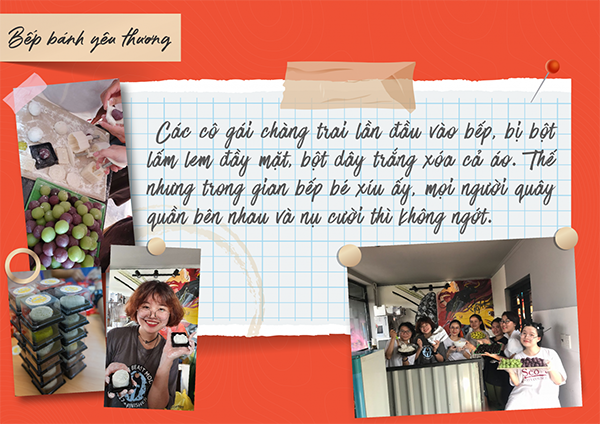 Bếp bánh yêu thương
Các cô gái chàng trai lần đầu vào bếp, bị bột
lấm lem đầy mặt, bột dây trắng xóa cả áo. Thế
nhưng trong gian bếp bé xíu ấy, mọi người quây
quần bên nhau và nụ cười thì không ngớt.